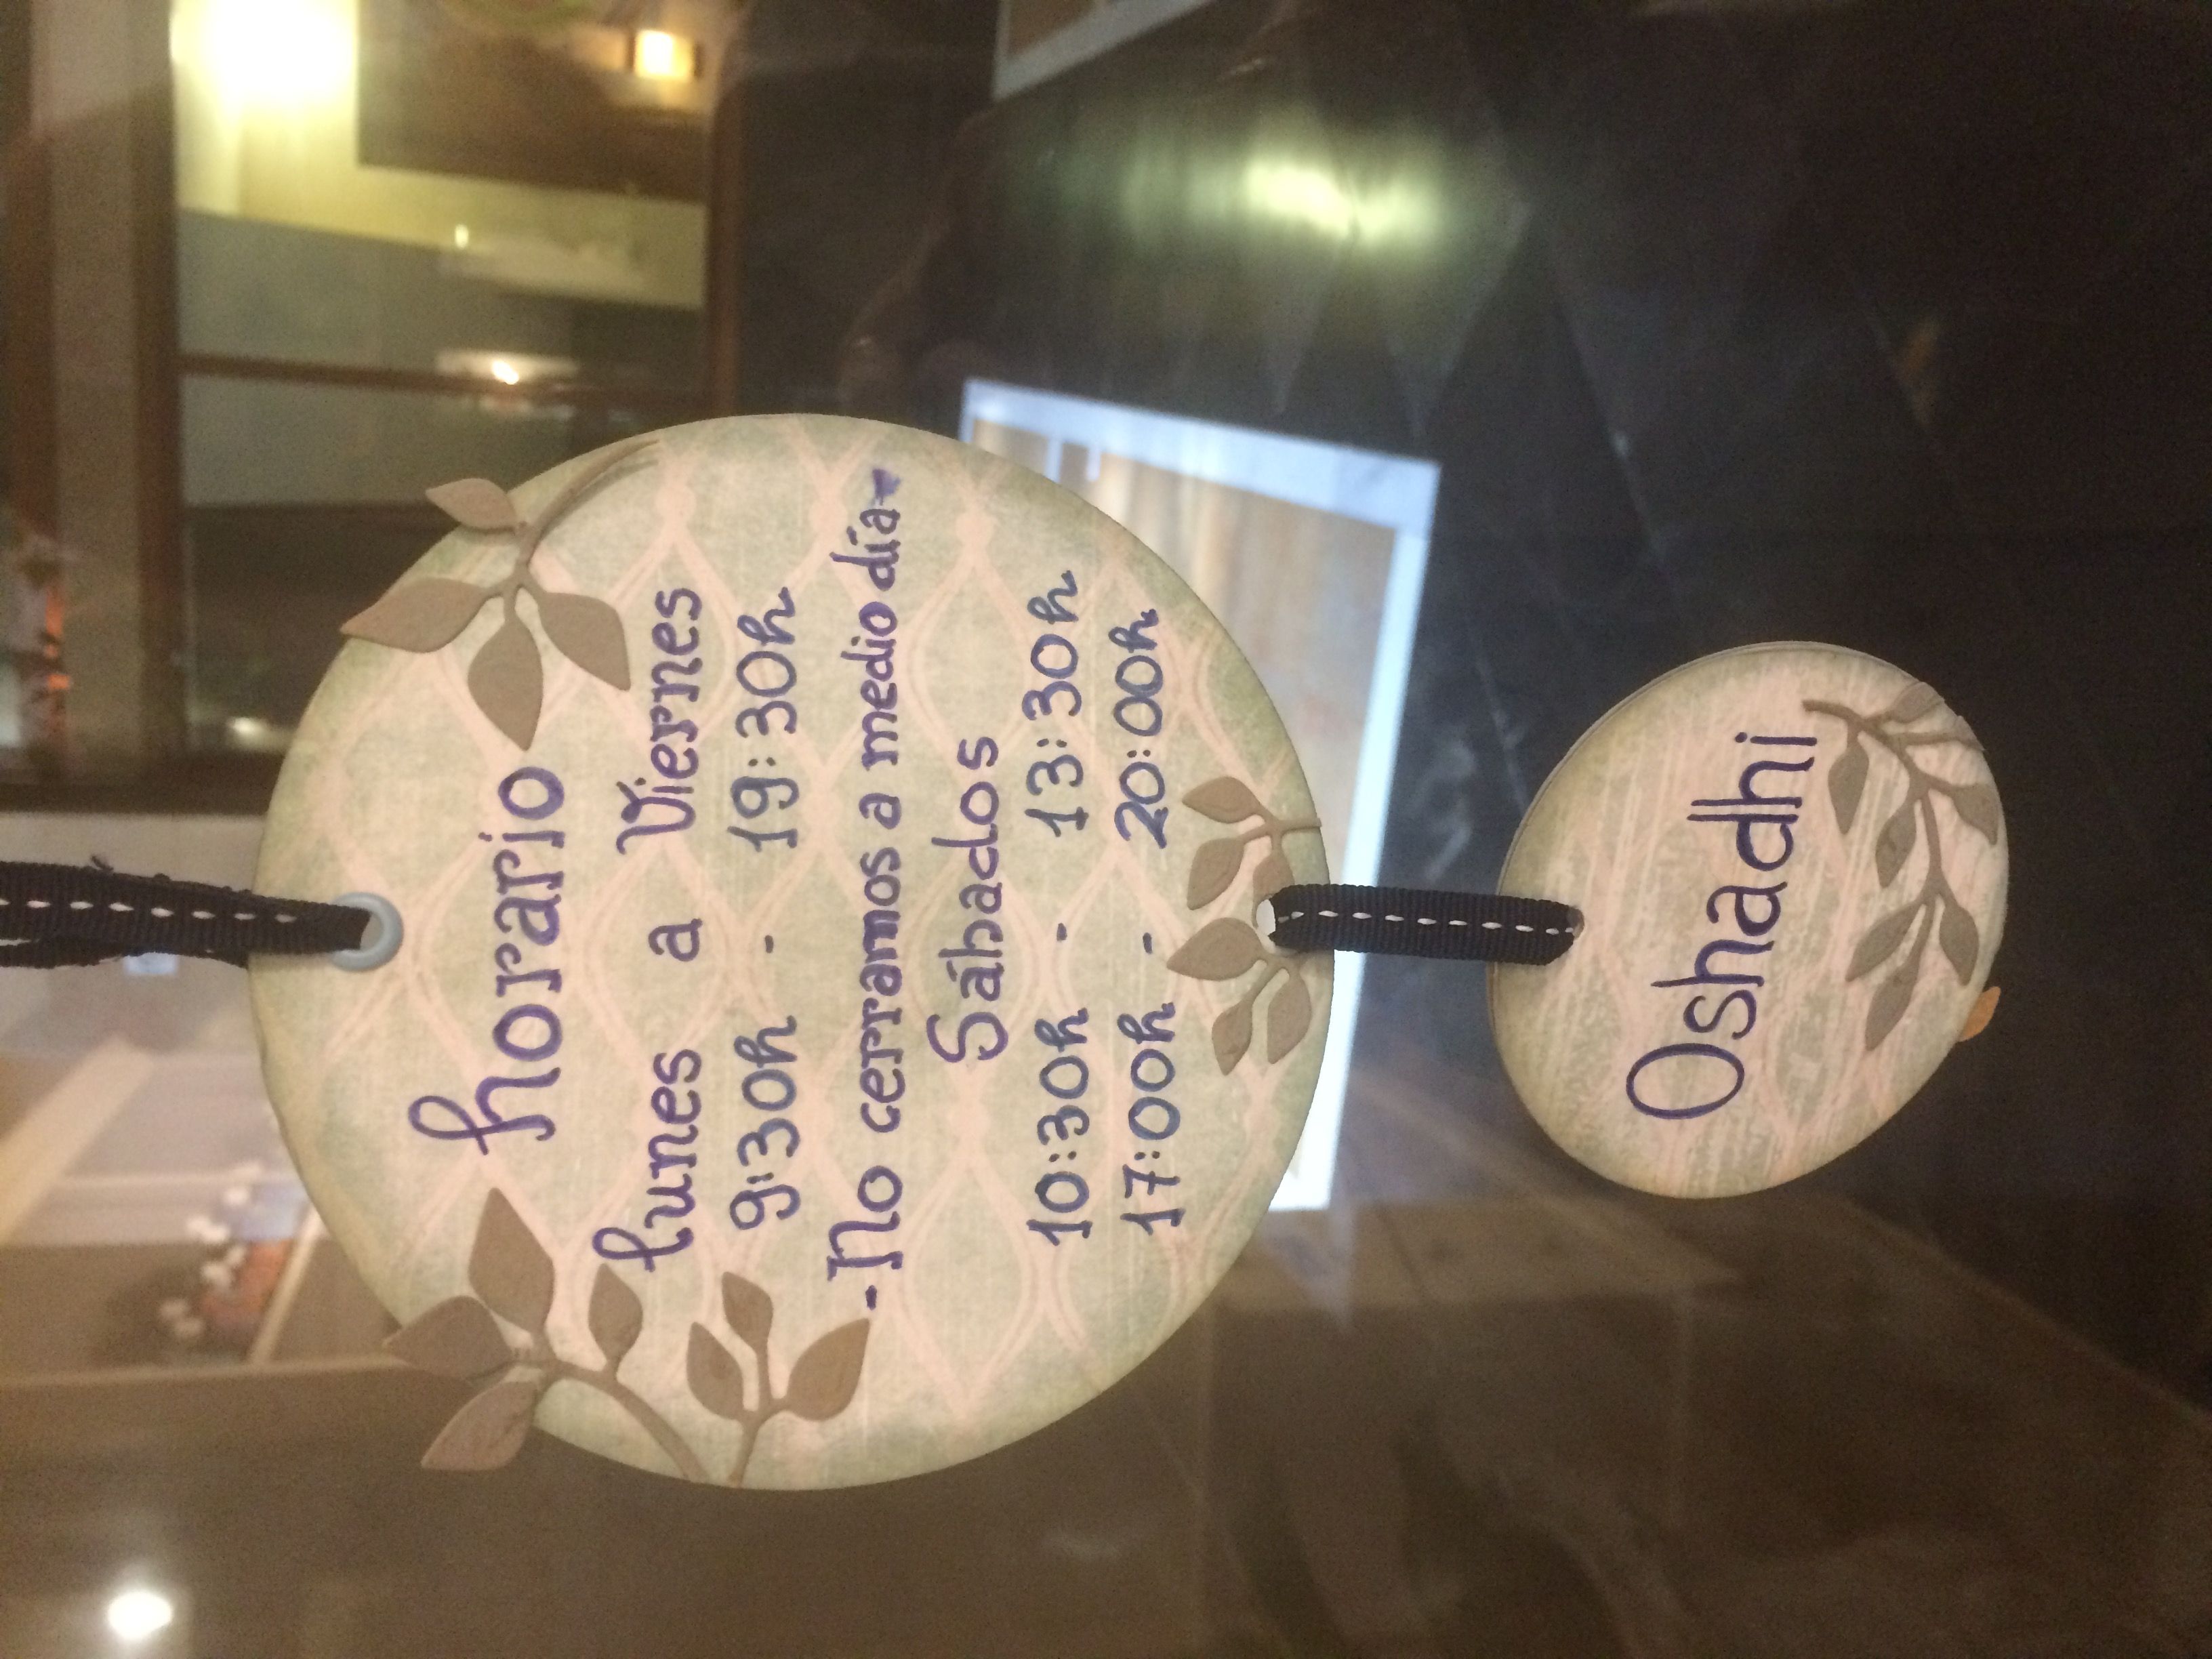 horario
lunes a Viernes
9:30h - 19:30h
-No cerramos a medio día-
Sábados
10:30h - 13:30h
17:00h - 20:00h
Oshadhi